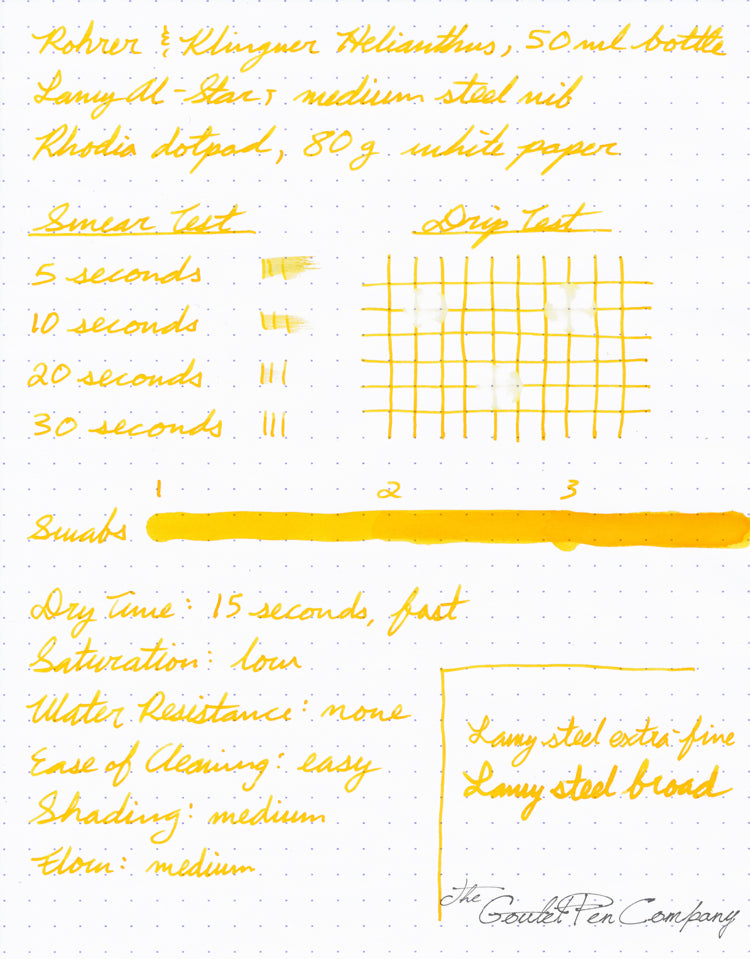 Rohrer & Klingner Helianthus, 50 ml bottle
Lamy Al-Star, medium steel nib
Rhodia dotpad, 80g white paper
Smear Test
Drip Test
5 seconds
10 seconds
20 seconds
30 seconds
1 2 3
Swabs
Dry Time: 15 seconds, fast
Saturation: low
Water Resistance: none
Ease of Cleaning: easy
Shading: medium
Flow: medium
Lamy steel extra-fine
Lamy steel broad
The Goulet Pen Company